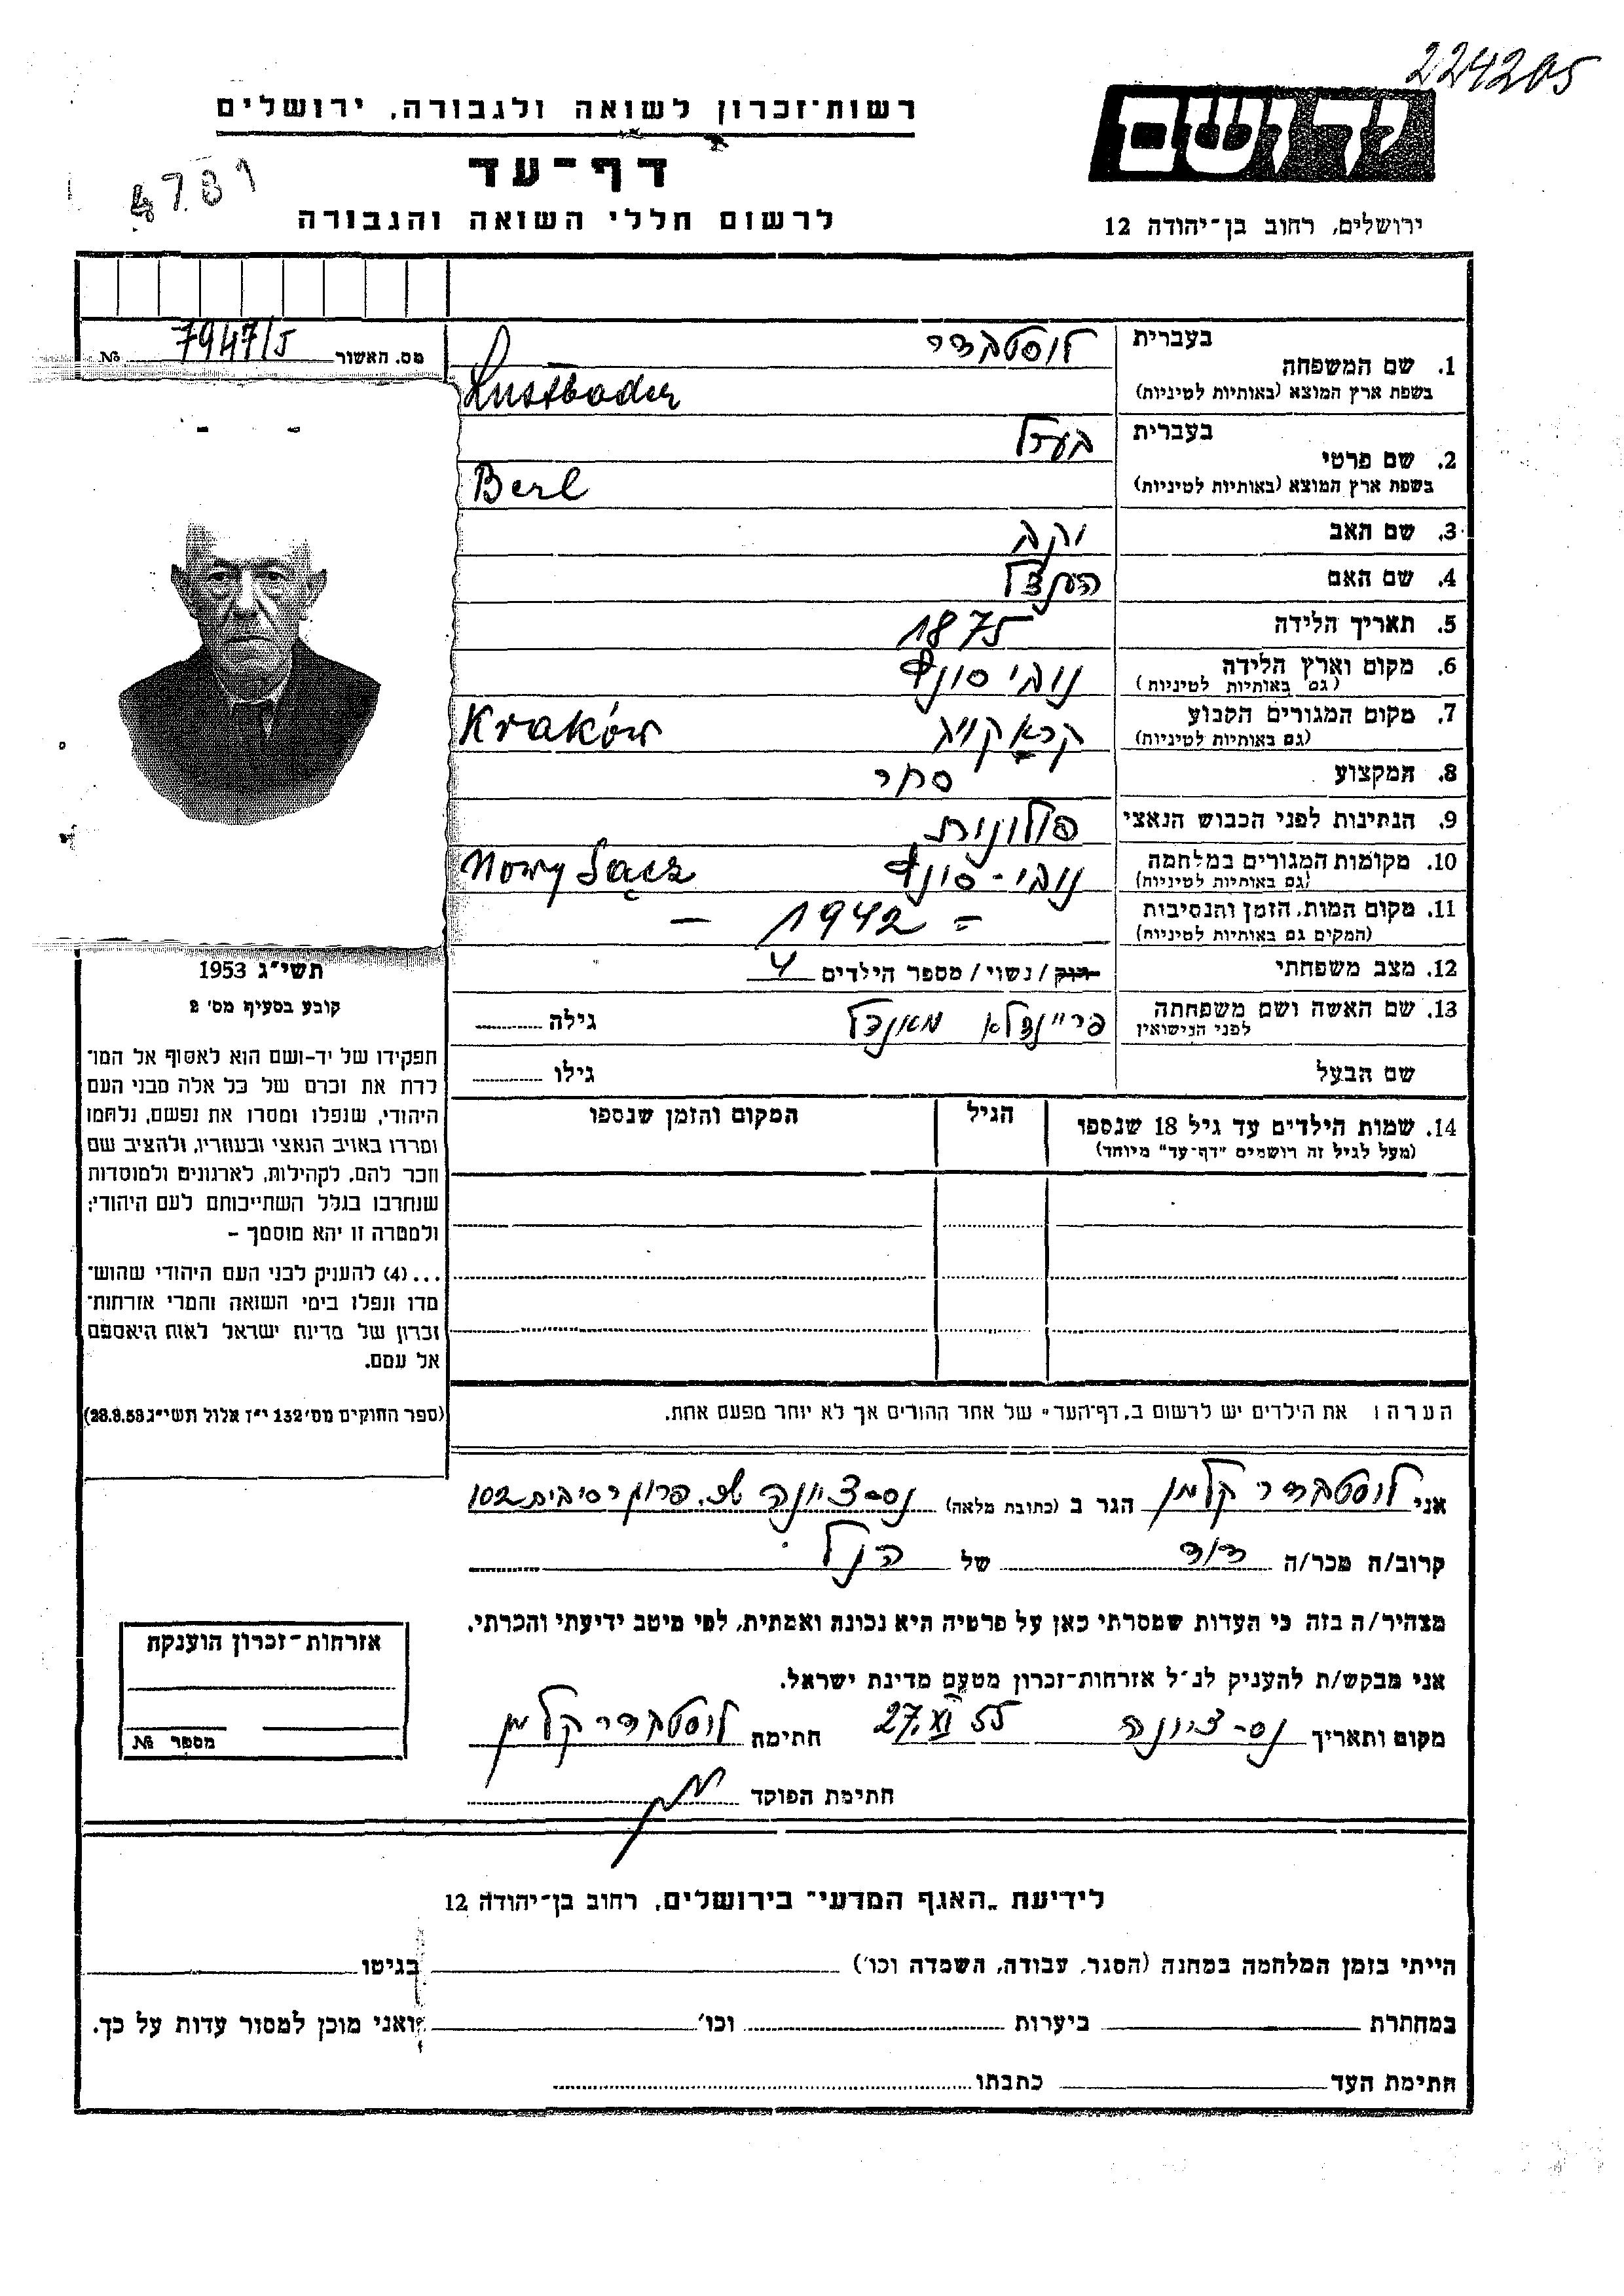 224205
רשות־זכרון לשואה ולגבורה, ירושלים
יד ושם
דף־עד
4781
לרשום חללי השואה והגבורה
ירושלים, רחוב בן־יהודה 12
מס. האשור 7947/J №
1. שם המשפחה
בעברית לוסטבדר
בשפת ארץ המוצא (באותיות לטיניות) Lustbader
2. שם פרטי
בעברית בערל
בשפת ארץ המוצא (באותיות לטיניות) Berl
3. שם האב יעקב
4. שם האם הענצל
5. תאריך הלידה 1875
6. מקום וארץ הלידה נובי סונץ
(גם באותיות לטיניות)
7. מקום המגורים הקבוע קראקויב Kraków
(גם באותיות לטיניות)
8. המקצוע סחר
9. הנתינות לפני הכבוש הנאצי פולונית
10. מקומות המגורים במלחמה נובי-סונץ Nowy Sącz
(גם באותיות לטיניות)
11. מקום המות, הזמן והנסיבות = 1942 –
(המקום גם באותיות לטיניות)
12. מצב משפחתי רווק / נשוי / מספר הילדים 4
13. שם האשה ושם משפחתה פריינדלא מאנדל גילה
לפני הנישואין
שם הבעל גילו
14. שמות הילדים עד גיל 18 שנספו הגיל המקום והזמן שנספו
(מעל לגיל זה רושמים "דף-עד" מיוחד)
תשי"ג 1953
קובע בסעיף מס' 2
תפקידו של יד-ושם הוא לאסוף אל המו־
לדת את זכרם של כל אלה מבני העם
היהודי, שנפלו ומסרו את נפשם, נלחמו
ומרדו באויב הנאצי ובעוזריו, ולהציב שם
וזכר להם, לקהילות, לארגונים ולמוסדות
שנחרבו בגלל השתייכותם לעם היהודי;
ולמטרה זו יהא מוסמך –
...(4) להעניק לבני העם היהודי שהוש־
מדו ונפלו בימי השואה והמרי אזרחות־
זכרון של מדינת ישראל לאות היאספם
אל עמם.
(ספר החוקים מס' 132 י"ז אלול תשי"ג 28.8.53)
הערה: את הילדים יש לרשום ב"דף-העד" של אחד ההורים אך לא יותר מפעם אחת.
אני לוסטבדר קלמן הגר ב (כתובת מלאה) נס-ציונה 102
קרוב/ה מכר/ה דוד של הנ"ל
מצהיר/ה בזה כי העדות שמסרתי כאן על פרטיה היא נכונה ואמתית, לפי מיטב ידיעתי והכרתי.
אני מבקש/ת להעניק לנ"ל אזרחות-זכרון מטעם מדינת ישראל.
מקום ותאריך נס-ציונה 27.XI 55 חתימה לוסטבדר קלמן
חתימת הפוקד
אזרחות-זכרון הוענקה
מספר №
לידיעת "האגף המדעי" בירושלים, רחוב בן־יהודה 12
הייתי בזמן המלחמה במחנה (הסגר, עבודה, השמדה וכו') בגיטו
במחתרת ביערות וכו' ואני מוכן למסור עדות על כך.
חתימת העד כתבתו